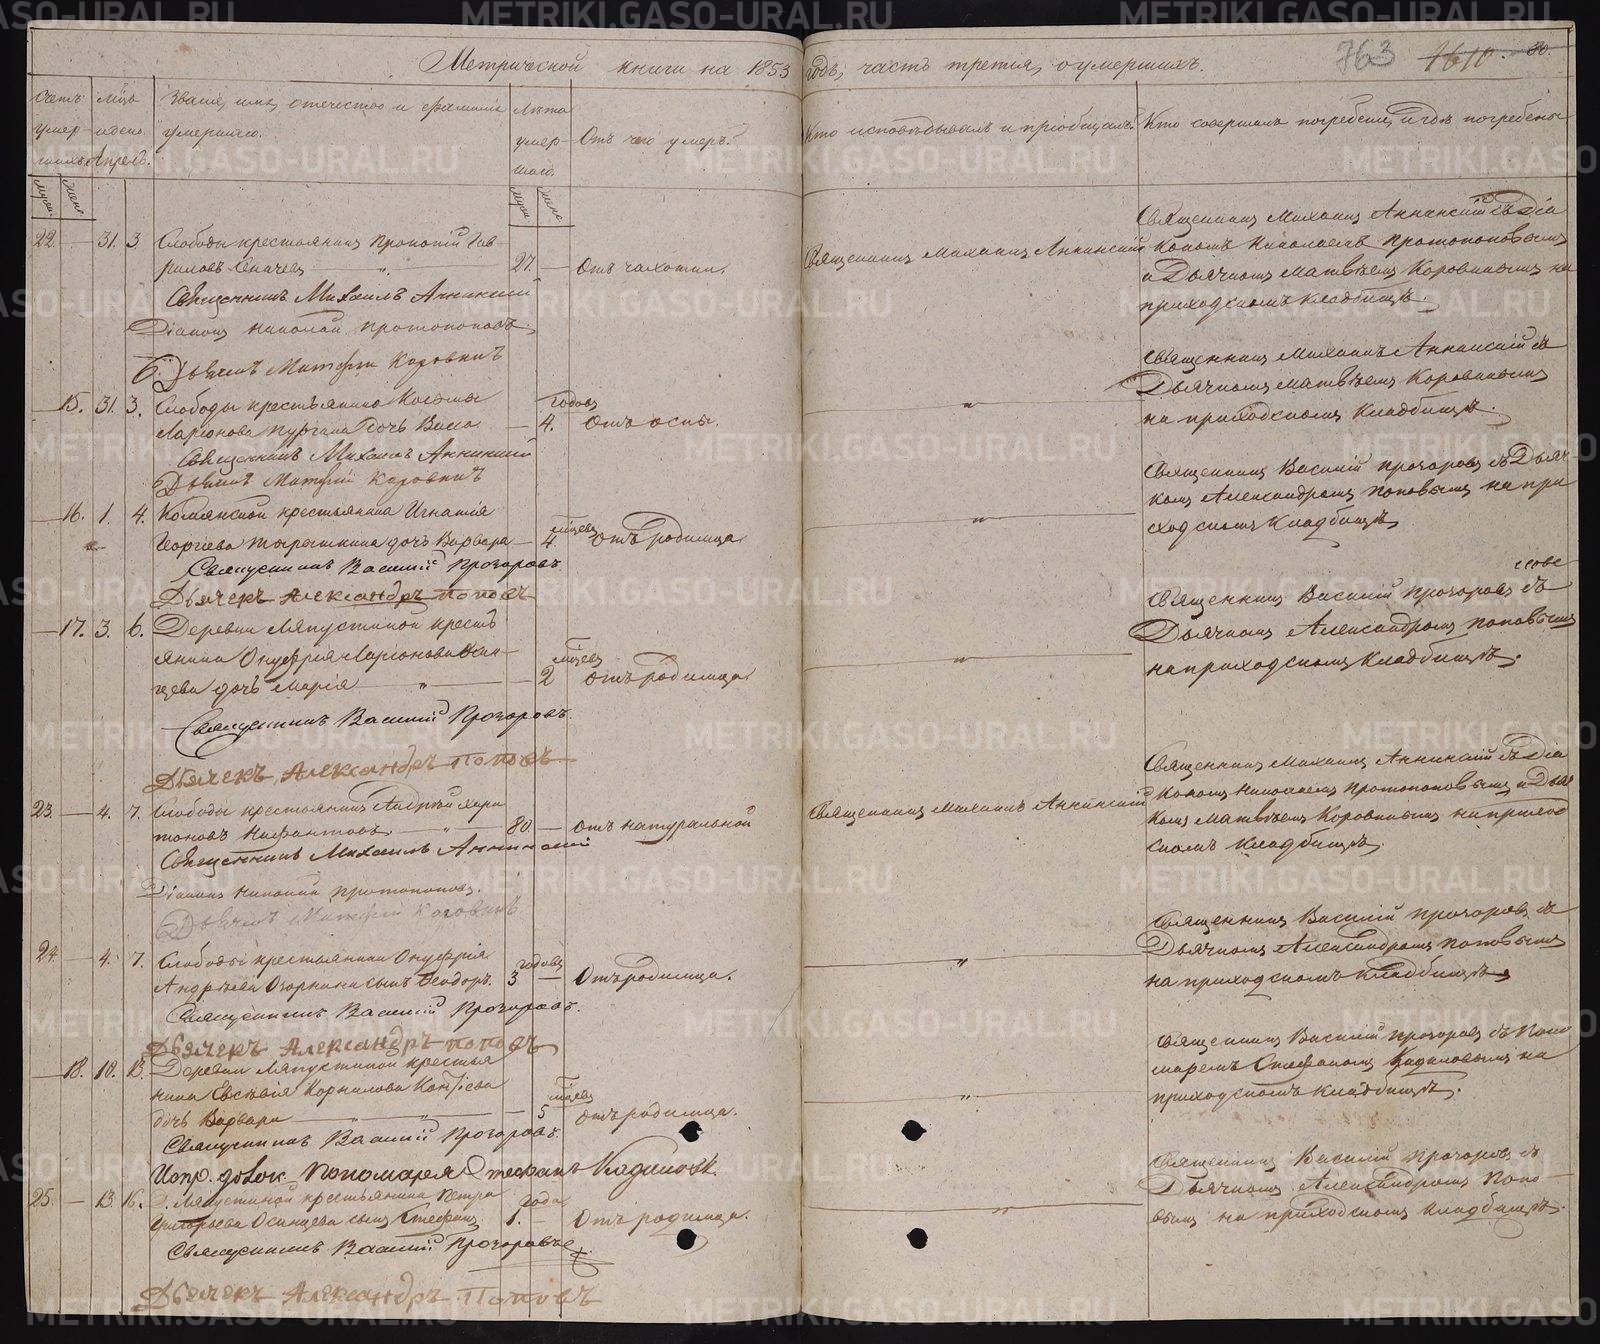 Метрической книги на 1853 годъ, часть третья, о умершихъ.
763 1610 80.
Счетъ умершихъ
Мѣсяцъ и день
Апрель.
Званіе, имя, отчество и фамилія
умершаго.
Лѣта
умер-
шаго.
Отъ чего умеръ.
Кто исповѣдывалъ и пріобщалъ.
Кто совершалъ погребеніе, и гдѣ погребены
22. — 31. 3. Слободы крестьянинъ Прокопій Гав-
риловъ 27. — Отъ чахотки.
Священникъ Михаилъ Аннинскій
Діаконъ Николай Протопоповъ
Дьячекъ Матфій Коровинъ
Священникъ Михаилъ Аннинскій
Священникъ Михаилъ Аннинскій съ Діа
кономъ Николаемъ Протопоповымъ
и Дьячкомъ Матвѣемъ Коровинымъ на
приходскомъ кладбищѣ.
— 15. 31. 3. Слободы крестьянина Косьмы
Ларіонова дочь Васса — годовъ 4. Отъ оспы.
Священникъ Михаилъ Аннинскій
Дьячекъ Матфій Коровинъ
Священникъ Михаилъ Аннинскій съ
Дьячкомъ Матвѣемъ Коровинымъ
на приходскомъ кладбищѣ.
— 16. 1. 4. крестьянина Игнатія
Георгіева дочь Варвара — 4. Отъ родимца
Священникъ Василій Прозоровъ
Дьячекъ Александръ Поповъ
Священникъ Василій Прозоровъ съ Дьяч-
комъ Александромъ Поповымъ на при
ходскомъ кладбищѣ
— 17. 3. 6. Деревни Ляпустиной кресть
янина Онуфрія Ларіонова
дочь Марія — 2 Отъ родимца
Священникъ Василій Прозоровъ
Дьячекъ Александръ Поповъ
Священникъ Василій Прозоровъ съ
Дьячкомъ Александромъ Поповымъ
на приходскомъ кладбищѣ.
23. — 4. 7. Слободы крестьянинъ Андрей Хари
тоновъ 80. — Отъ натуральной
Священникъ Михаилъ Аннинскій
Діаконъ Николай Протопоповъ.
Дьячекъ Матфій Коровинъ
Священникъ Михаилъ Аннинскій
Священникъ Михаилъ Аннинскій съ Діа
кономъ Николаемъ Протопоповымъ и Дьяч
комъ Матвѣемъ Коровинымъ на приход
скомъ кладбищѣ.
24. — 4. 7. Слободы крестьянина Онуфрія
Андрѣева сынъ Ѳеодоръ. годовъ 3 — Отъ родимца.
Священникъ Василій Прозоровъ.
Дьячекъ Александръ Поповъ
Священникъ Василій Прозоровъ съ
Дьячкомъ Александромъ Поповымъ
на приходскомъ кладбищѣ
— 18. 10. 13. Деревни Ляпустиной крестья
нина Евсевія Корнилова
дочь Варвара — 5 Отъ родимца.
Священникъ Василій Прозоровъ.
Испр. должн. Пономаря Стефанъ Кадиловъ
Священникъ Василій Прозоровъ съ Поно
маремъ Стефаномъ Кадиловымъ на
приходскомъ кладбищѣ.
25. — 13. 16. Д. Ляпустиной крестьянина Петра
Григорьева Осинцева сынъ Стефанъ года 1. — Отъ родимца.
Священникъ Василій Прозоровъ
Дьячекъ Александръ Поповъ
Священникъ Василій Прозоровъ съ
Дьячкомъ Александромъ Попо-
вымъ на приходскомъ кладбищѣ.
METRIKI.GASO-URAL.RU